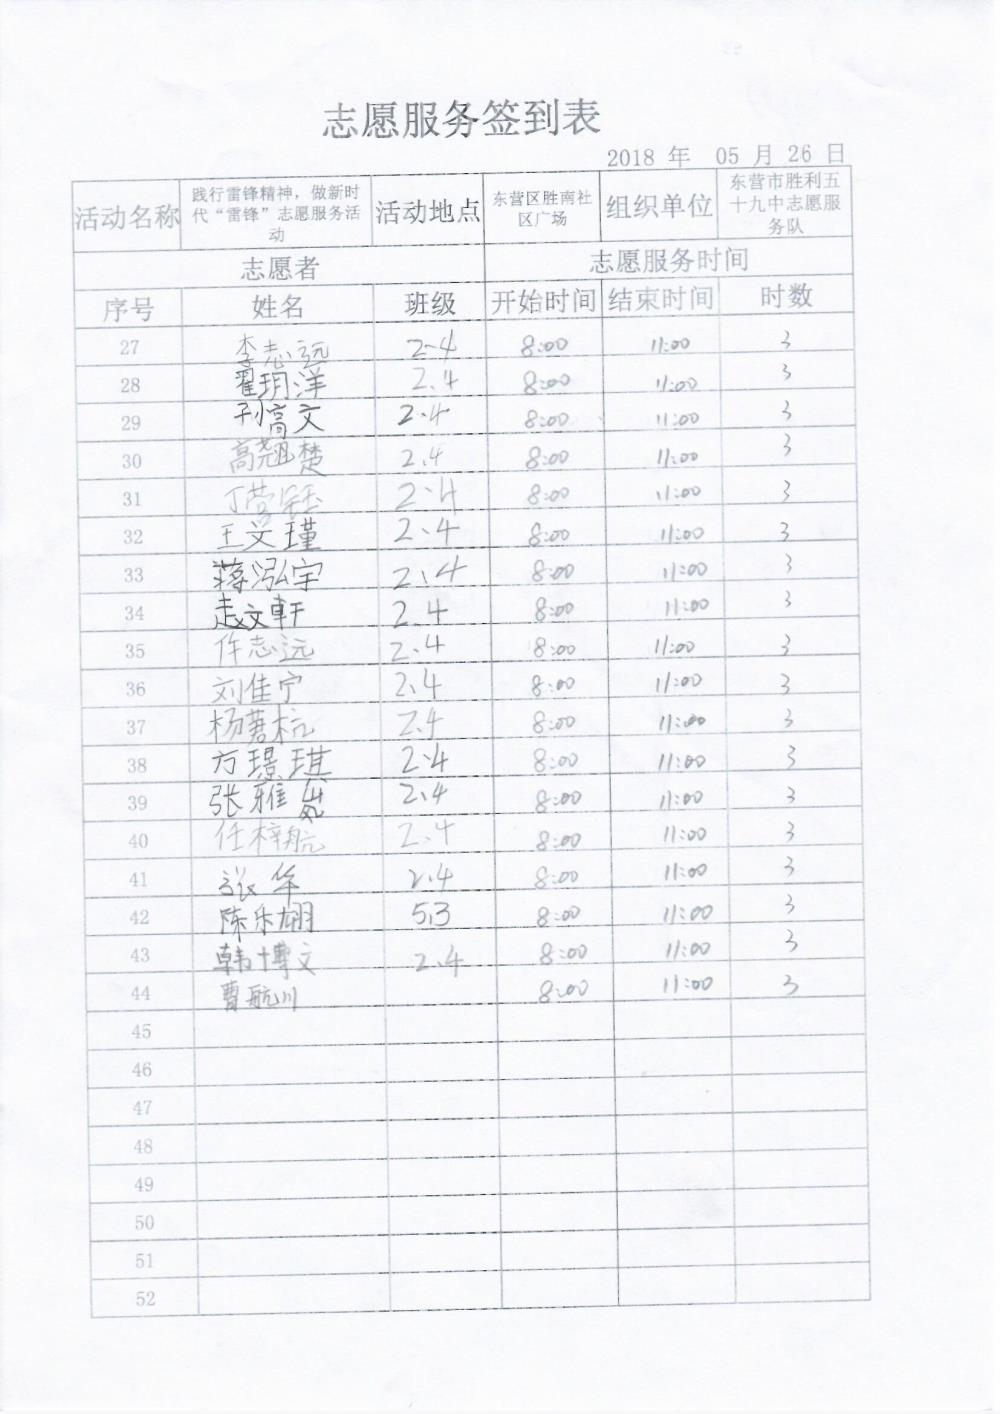 志愿服务签到表
2018 年 05 月 26 日
活动名称 践行雷锋精神，做新时代“雷锋”志愿服务活动 活动地点 东营区胜南社区广场 组织单位 东营市胜利五十九中志愿服务队
志愿者 志愿服务时间
序号 姓名 班级 开始时间 结束时间 时数
27 李志远 2.4 8:00 11:00 3
28 翟玥洋 2.4 8:00 11:00 3
29 孙高文 2.4 8:00 11:00 3
30 高翘楚 2.4 8:00 11:00 3
31 2.4 8:00 11:00 3
32 王文瑾 2.4 8:00 11:00 3
33 蒋泓宇 2.4 8:00 11:00 3
34 赵文轩 2.4 8:00 11:00 3
35 许志远 2.4 8:00 11:00 3
36 刘佳宁 2.4 8:00 11:00 3
37 2.4 8:00 11:00 3
38 方璟琪 2.4 8:00 11:00 3
39 张雅岚 2.4 8:00 11:00 3
40 任梓航 2.4 8:00 11:00 3
41 张华 2.4 8:00 11:00 3
42 陈乐栩 5.3 8:00 11:00 3
43 韩博文 2.4 8:00 11:00 3
44 曹航川 8:00 11:00 3
45
46
47
48
49
50
51
52